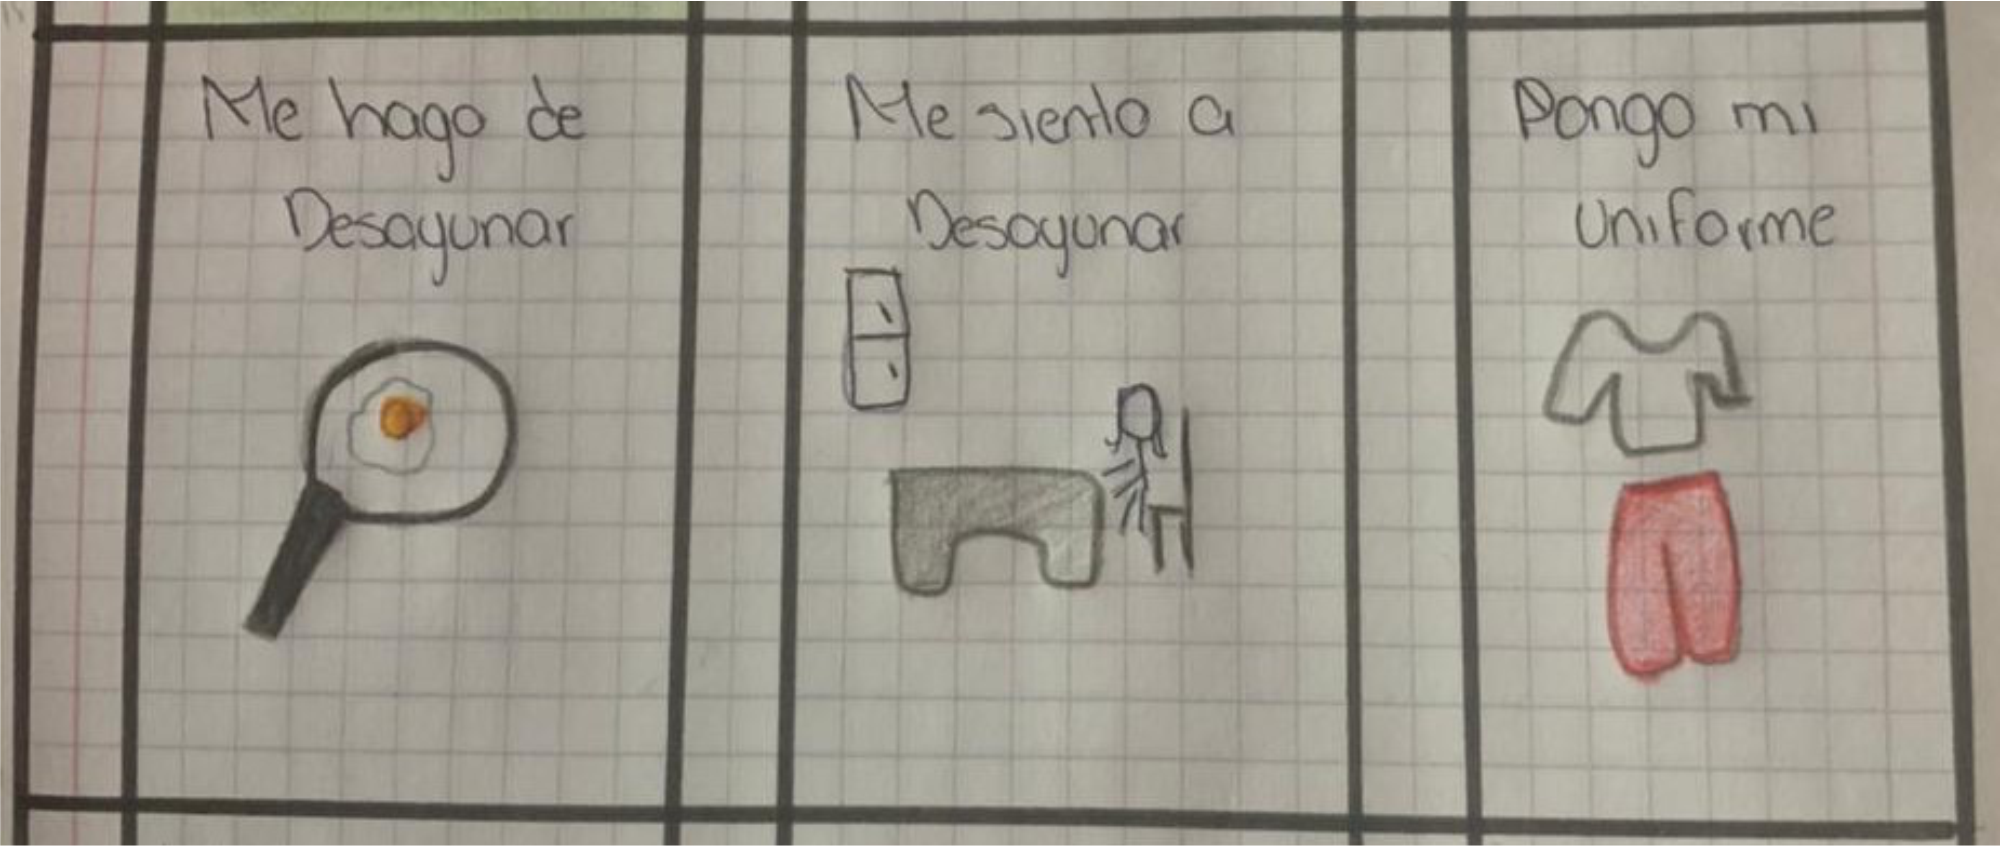 Me hago de
Desayunar
Me siento a
Desayunar
Pongo mi
Uniforme